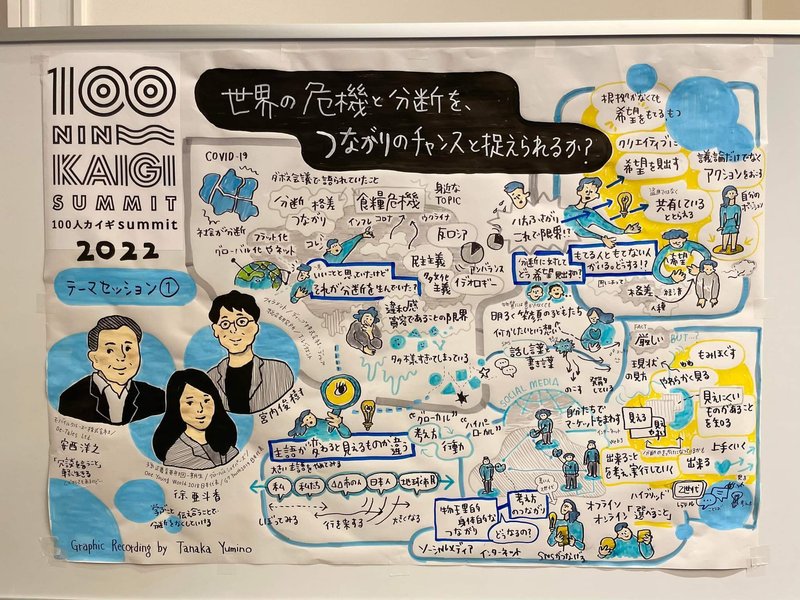 100
NIN
KAIGI
SUMMIT
100人カイギsummit
2022
テーマセッション①
世界の危機と分断を、
つながりのチャンスと捉えられるか?
COVID-19
社会が分断
フラット化
グローバル化やネット
ダボス会議で語られていたこと
分断 格差
つながり
食糧危機
身近な
TOPIC
インフレ コロナ ウクライナ
反ロシア
民主主義
多文化
主義
アンバランス
イデオロギー
コレ!
いいことと思っていたけど
それが分断を生んでいた?
違和感
寛容であることの限界
多様すぎてしまっている
これで限界!?
分断に対して
どう希望見出す?
根拠がなくても
希望をもてるもつ
クリエイティブに
希望を見出す
共有している
ととらえる
議論だけでなく
アクションをおこす
自分のポジション
もてる人ともてない人
がいる。どうする!?
希望
格差
人種
明るく笑顔の子どもたち
何かしたいという想い
話し言葉
書き言葉
のこす
FACT
厳しい
BUT...?
現状
の見方
もみほぐす
やわらかく見る
見える
見えにくい
ものがあること
を知る
出来ること
を考え、実行していく
上手くいく
出来る
宮内俊樹
安西洋之
徐亜斗香
主語が変わると見えるものが違う
大きい主語を使ってみる
私
私たち
△△市の人
日本人
地球市民
しぼってみる
行き来する
大きくなる
"グローカル"
"ハイパーローカル"
考える
行動
SOCIAL MEDIA
自分たちで
マーケットをまわす
物理的
身体的な
つながり
考え方
のつながり
どうなるの?
ソーシャルメディア
インターネット
SNSがつないでいる
オフライン
オンライン
ハイブリッド
「選べること」
Z世代
Graphic Recording by Tanaka Yumino